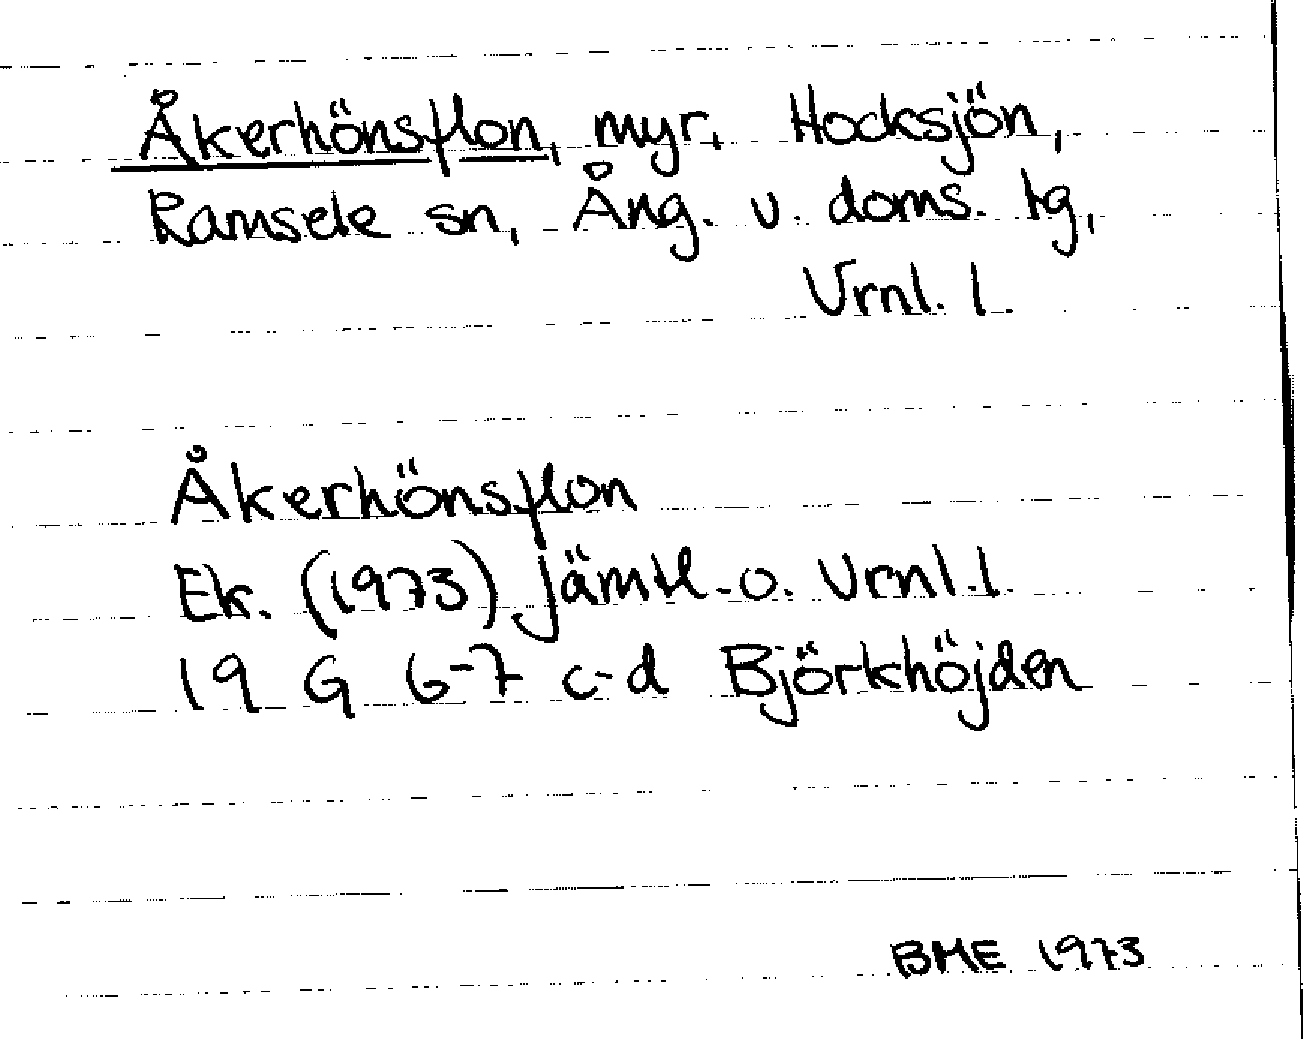 Åkerhönsflon, myr, Hocksjön,
Ramsele sn, Ång. v. doms. tg,
Vrnl. l.
Åkerhönsflon
Ek. (1973) Jämtl. o. Vrnl. l.
19 G 6-7 c-d Björkhöjden
BME 1973